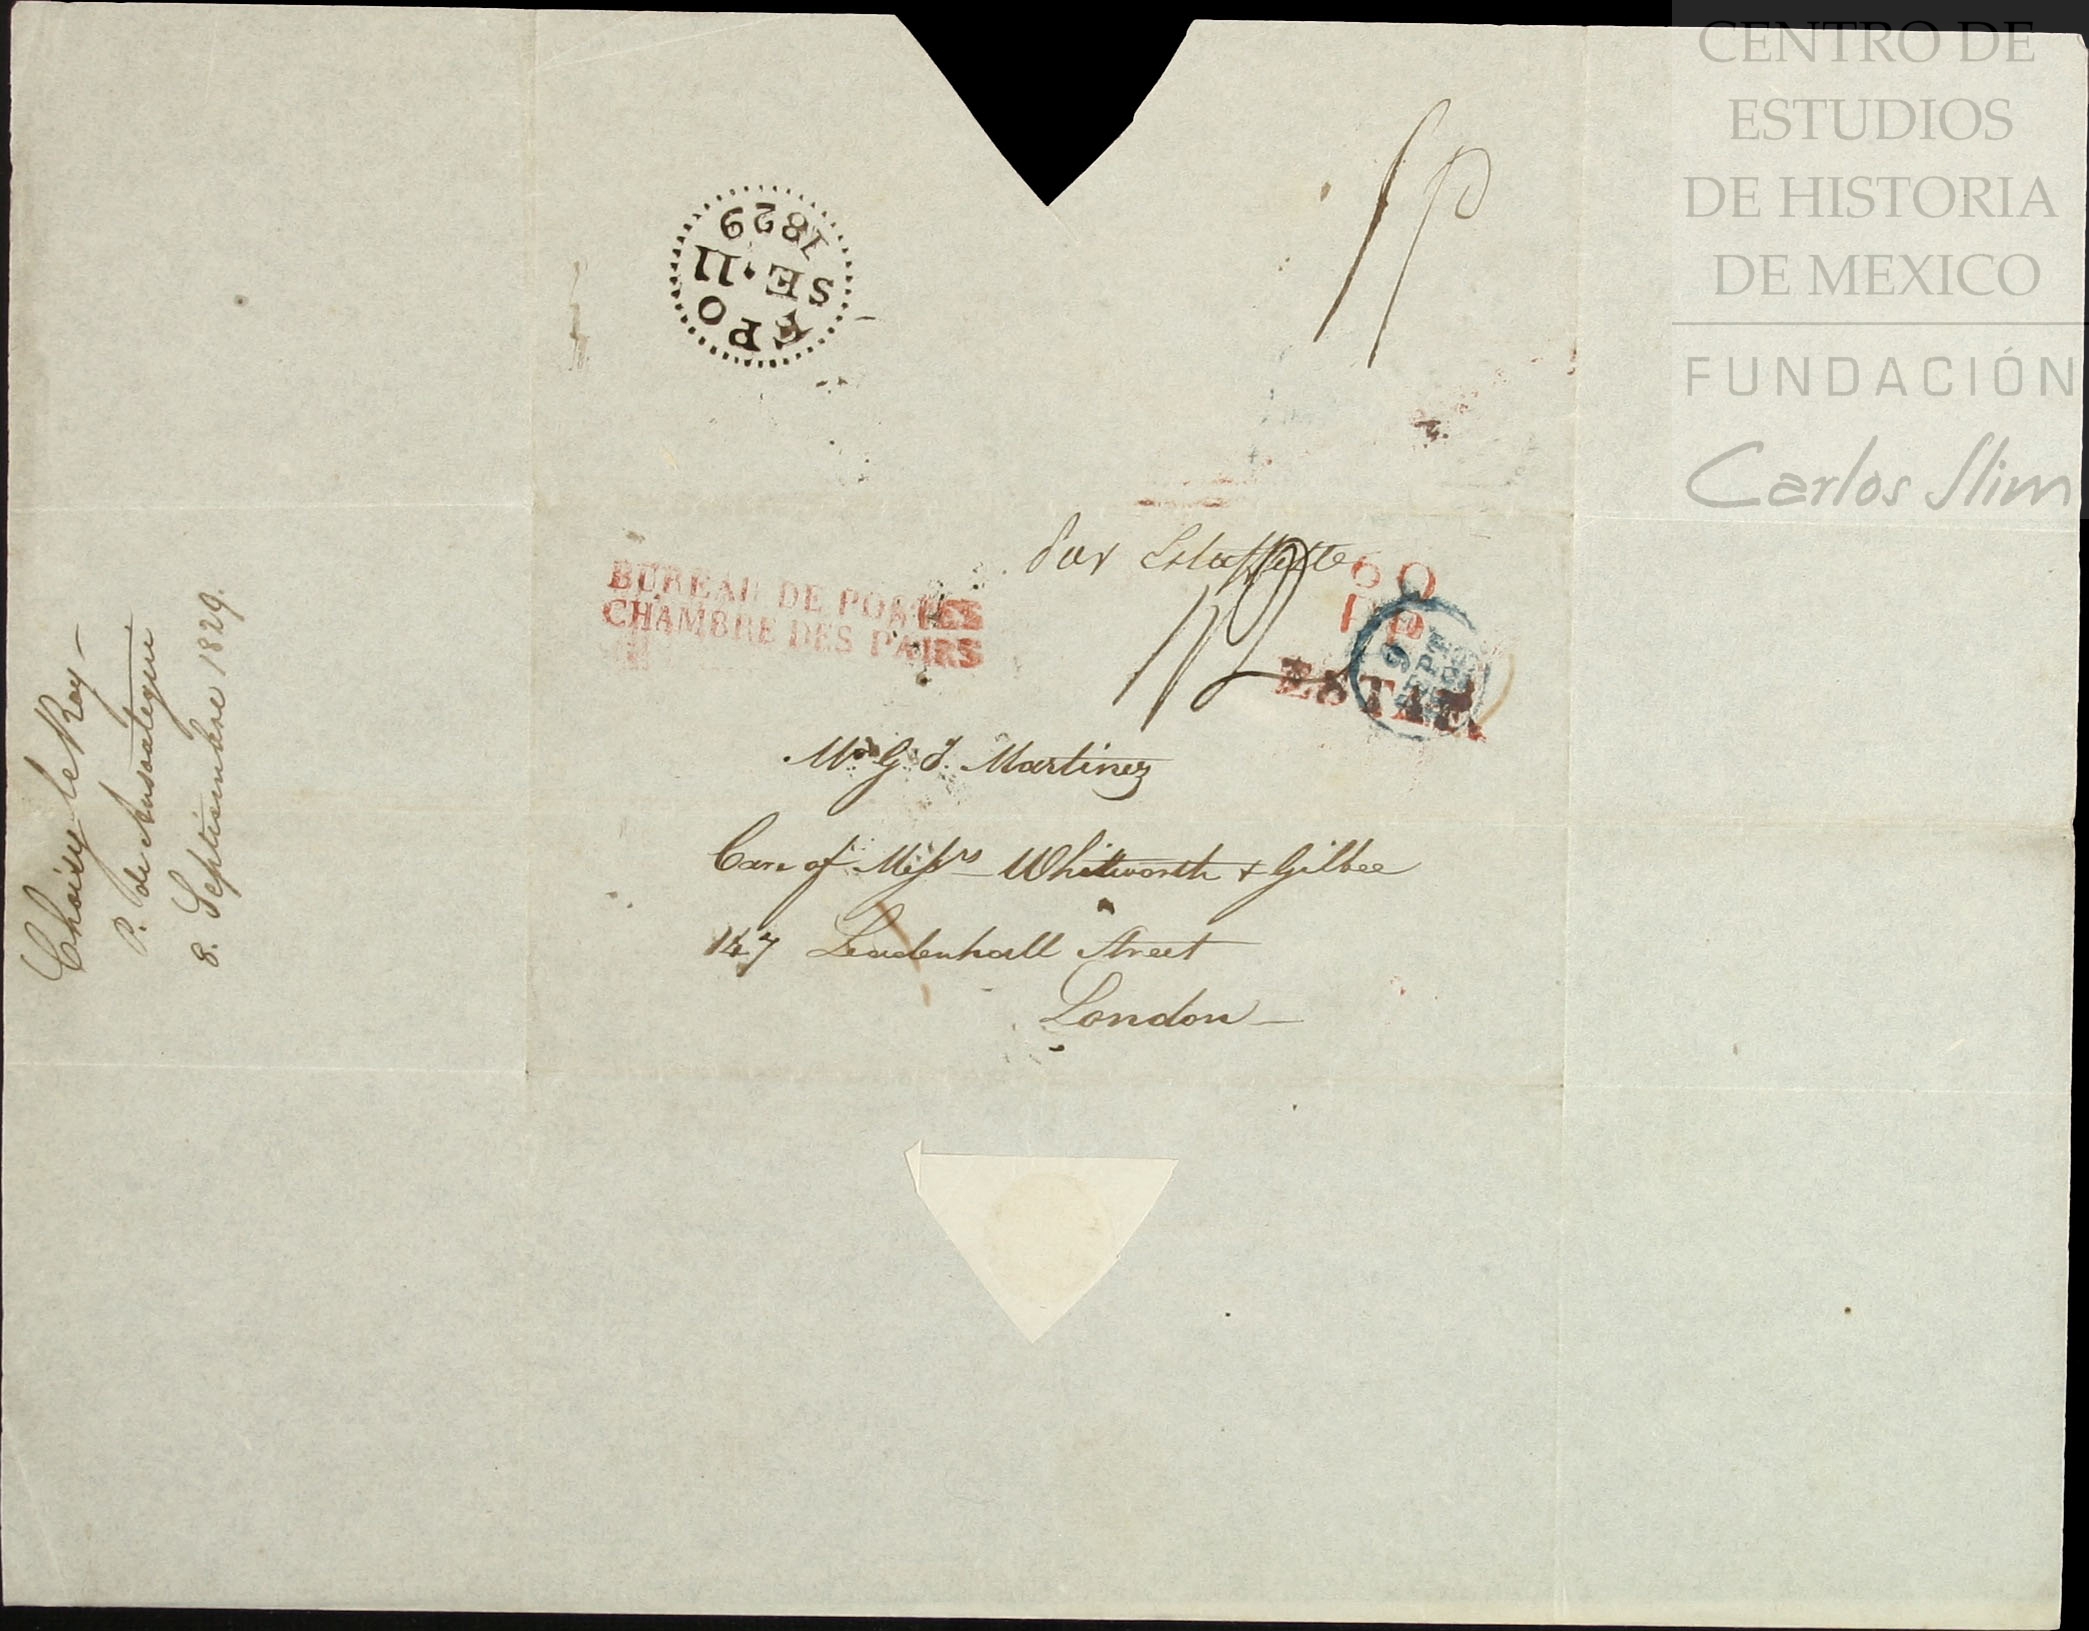 CENTRO DE
ESTUDIOS
DE HISTORIA
DE MEXICO
FUNDACIÓN
Carlos Slim
FPO
SE·11
1829
par Estaffette
BUREAU DE POSTES
CHAMBRE DES PAIRS
60
PP
ESTAF.
12
Mr G. J. Martinez
Care of Messrs Whitworth & Gilbee
147 Leadenhall Street
London
Choisy le Roy
P. de Ausoategui
8. Septiembre 1829.